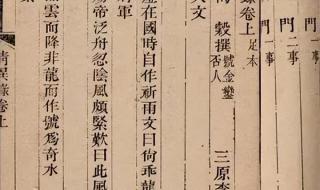 門 二事
門 一事
錄卷上 足本
穀撰 號金鑾否人 三原李
天文
虛在國時自作祈雨文曰尙乖龍
將軍
煬帝泛舟忽陰風頗緊歎曰此風
雲而降非龍而作號爲奇水
清異錄卷上